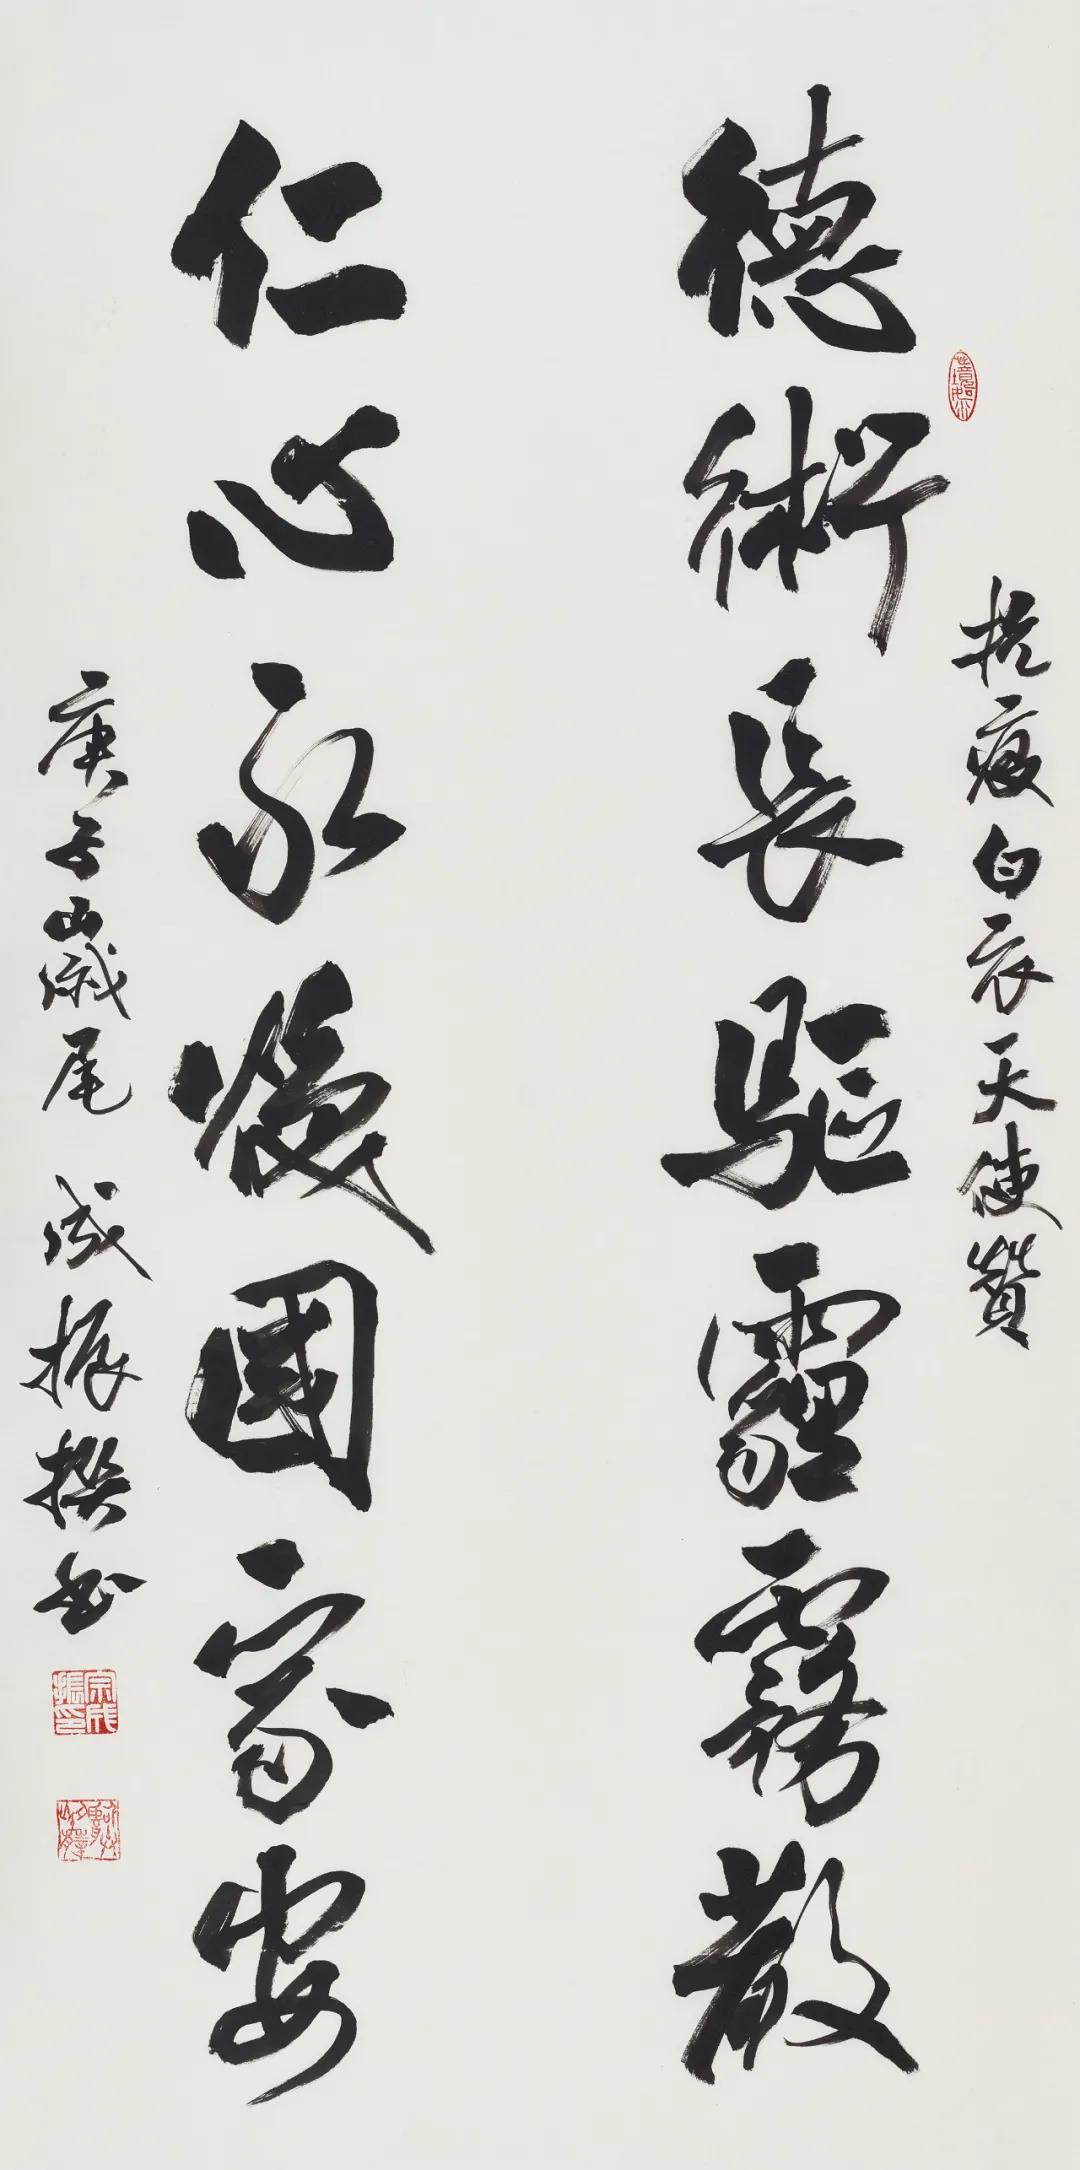 抗疫白衣天使贊
德術長驅霾霧散
仁心永暖國家安
庚子歲尾 成振撰書
宗成振印